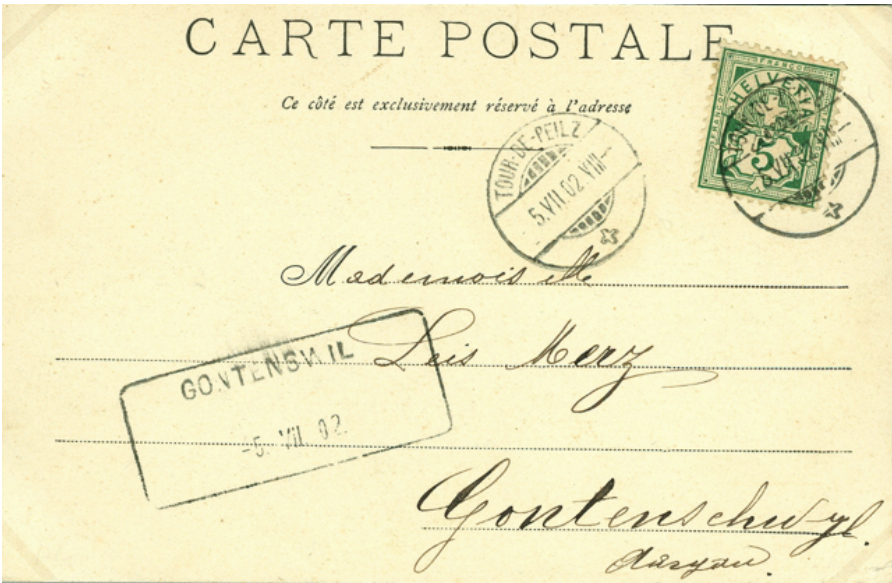 CARTE POSTALE
Ce côté est exclusivement réservé à l'adresse
FRANCO
HELVETIA
5
TOUR-DE-PEILZ
5.VII.02.VIII-
Mademoiselle
Leis Merz
GONTENSWIL
-5. VII. 02.
Gontenschwyl.
Aargau.